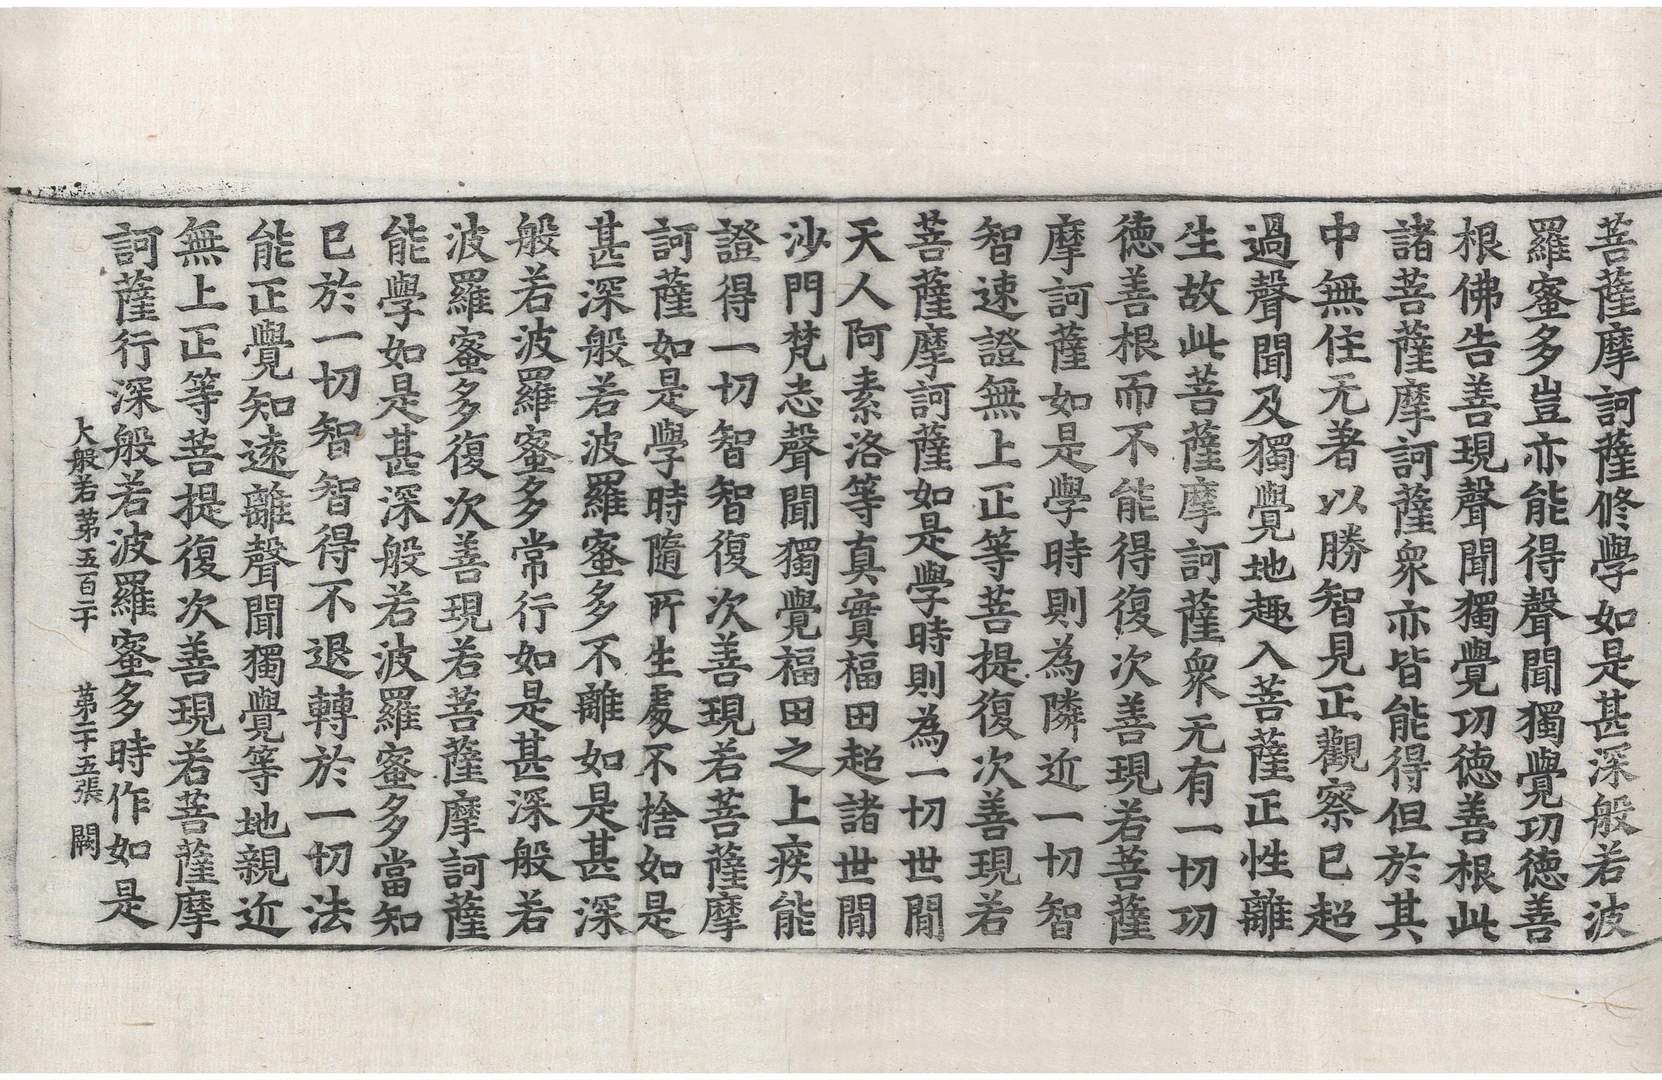 菩薩摩訶薩修學如是甚深般若波
羅蜜多豈亦能得聲聞獨覺功德善
根佛告善現聲聞獨覺功德善根此
諸菩薩摩訶薩衆亦皆能得但於其
中無住无著以勝智見正觀察已超
過聲聞及獨覺地趣入菩薩正性離
生故此菩薩摩訶薩衆无有一切功
德善根而不能得復次善現若菩薩
摩訶薩如是學時則為隣近一切智
智速證無上正等菩提復次善現若
菩薩摩訶薩如是學時則為一切世間
天人阿素洛等真實福田超諸世間
沙門梵志聲聞獨覺福田之上疾能
證得一切智智復次善現若菩薩摩
訶薩如是學時隨所生處不捨如是
甚深般若波羅蜜多不離如是甚深
般若波羅蜜多常行如是甚深般若
波羅蜜多復次善現若菩薩摩訶薩
能學如是甚深般若波羅蜜多當知
已於一切智智得不退轉於一切法
能正覺知遠離聲聞獨覺等地親近
無上正等菩提復次善現若菩薩摩
訶薩行深般若波羅蜜多時作如是
大般若第五百二十 第二十五張 闕